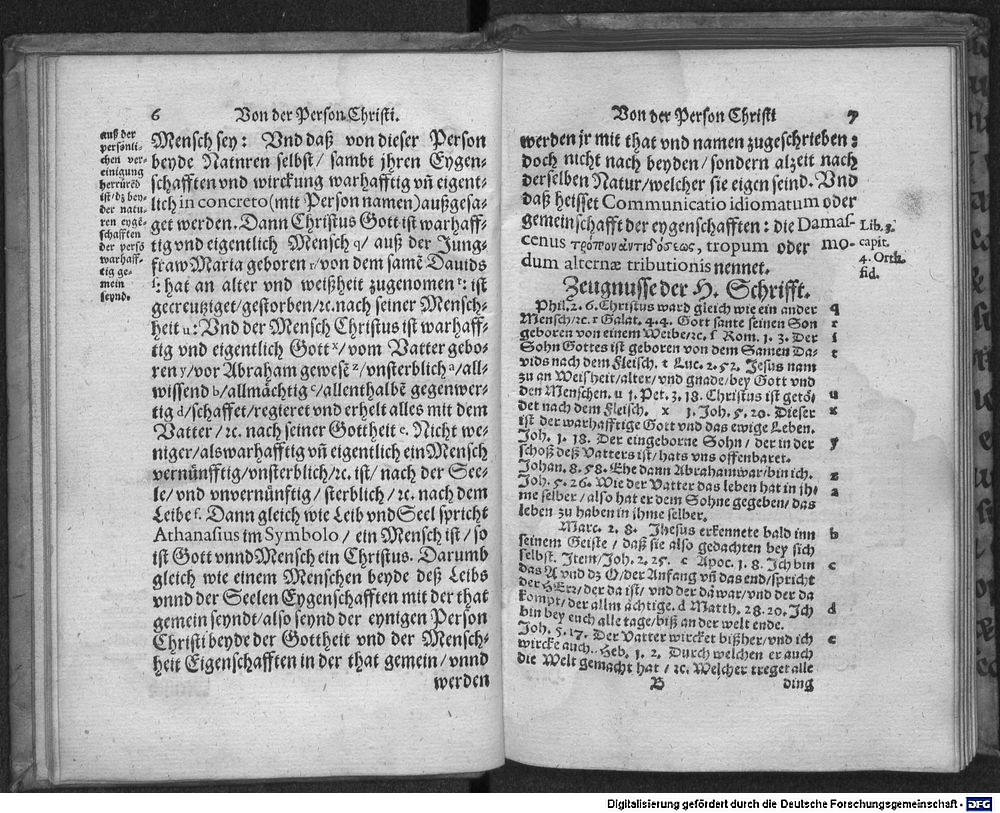 6 Von der Person Christi.
auß der
persönli-
chen ver-
einigung
herrüred
ist/dz bey-
der natu-
ren eygē-
schafften
der persō
warhaff-
tig ge-
mein
seynd.
Mensch sey: Vnd daß von dieser Person
beyde Natnren selbst/ sambt jhren Eygen-
schafften vnd wirckung warhafftig vñ eigent-
lich in concreto (mit Person namen) außgesa-
get werden. Dann Christus Gott ist warhaff-
tig vnd eigentlich Mensch q/ auß der Jung-
fraw Maria geboren r/ von dem samē Dauids
s: hat an alter vnd weißheit zugenomen t: ist
gecreutziget/gestorben/ꝛc. nach seiner Mensch-
heit u: Vnd der Mensch Christus ist warhaff-
tig vnd eigentlich Gott x/ vom Vatter gebo-
ren y/ vor Abraham gewesē z/ vnsterblich a/ all-
wissend b/ allmächtig c/ allenthalbē gegenwer-
tig d/ schaffet/ regieret vnd erhelt alles mit dem
Vatter/ ꝛc. nach seiner Gottheit e. Nicht we-
niger/ als warhafftig vñ eigentlich ein Mensch
vernünfftig/ vnsterblich/ ꝛc. ist/ nach der See-
le/ vnd vnvernünftig/ sterblich/ ꝛc. nach dem
Leibe f. Dann gleich wie Leib vnd Seel spricht
Athanasius im Symbolo/ ein Mensch ist/ so
ist Gott vnnd Mensch ein Christus. Darumb
gleich wie einem Menschen beyde deß Leibs
vnnd der Seelen Eygenschafften mit der that
gemein seyndt/ also seynd der eynigen Person
Christi beyde der Gottheit vnd der Mensch-
heit Eigenschafften in der that gemein/ vnnd
werden
Von der Person Christi 7
werden jr mit that vnd namen zugeschrieben:
doch nicht nach beyden/ sondern alzeit nach
derselben Natur/ welcher sie eigen seind. Vnd
daß heisset Communicatio idiomatum oder
gemeinschafft der eygenschafften: die Damas-
cenus τρόπον ἀντιδόσεως, tropum oder mo-
dum alternæ tributionis nennet.
Lib. 3.
capit.
4. Orth.
fid.
Zeugnusse der H. Schrifft.
Phil. 2. 6. Christus ward gleich wie ein ander q
Mensch/ ꝛc. r Galat. 4. 4. Gott sante seinen Son r
geboren von einem Weibe/ ꝛc. s Rom. 1. 3. Der s
Sohn Gottes ist geboren von dem Samen Da- t
vids nach dem Fleisch. t Luc. 2. 52. Jesus nam
zu an Weisheit/ alter/ vnd gnade/ bey Gott vnd
den Menschen. u 1. Pet. 3. 18. Christus ist getö- u
det nach dem Fleisch. x 1. Joh. 5. 20. Dieser x
ist der warhafftige Gott vnd das ewige Leben.
Joh. 1. 18. Der eingeborne Sohn/ der in der y
schoß deß Vatters ist/ hats vns offenbaret.
Johan. 8. 58. Ehe dann Abraham war/ bin ich. z
Joh. 5. 26. Wie der Vatter das leben hat in jh- a
me selber/ also hat er dem Sohne gegeben/ das
leben zu haben in ihme selber.
Marc. 2. 8. Jhesus erkennete bald inn b
seinem Geiste/ daß sie also gedachten bey sich
selbst. Item/ Joh. 2. 25. c Apoc. 1. 8. Ich bin c
das A vnd dz O/ der Anfang vñ das end/ spricht
der HErr/ der da ist/ vnd der da war/ vnd der da
kompt/ der allmächtige. d Matth. 28. 20. Ich d
bin bey euch alle tage/ biß an der welt ende.
Joh. 5. 17. Der Vatter wircket bißher/ vnd ich e
wircke auch. Heb. 1. 2. Durch welchen er auch
die Welt gemacht hat/ ꝛc. Welcher treget alle
B ding
Digitalisierung gefördert durch die Deutsche Forschungsgemeinschaft - DFG